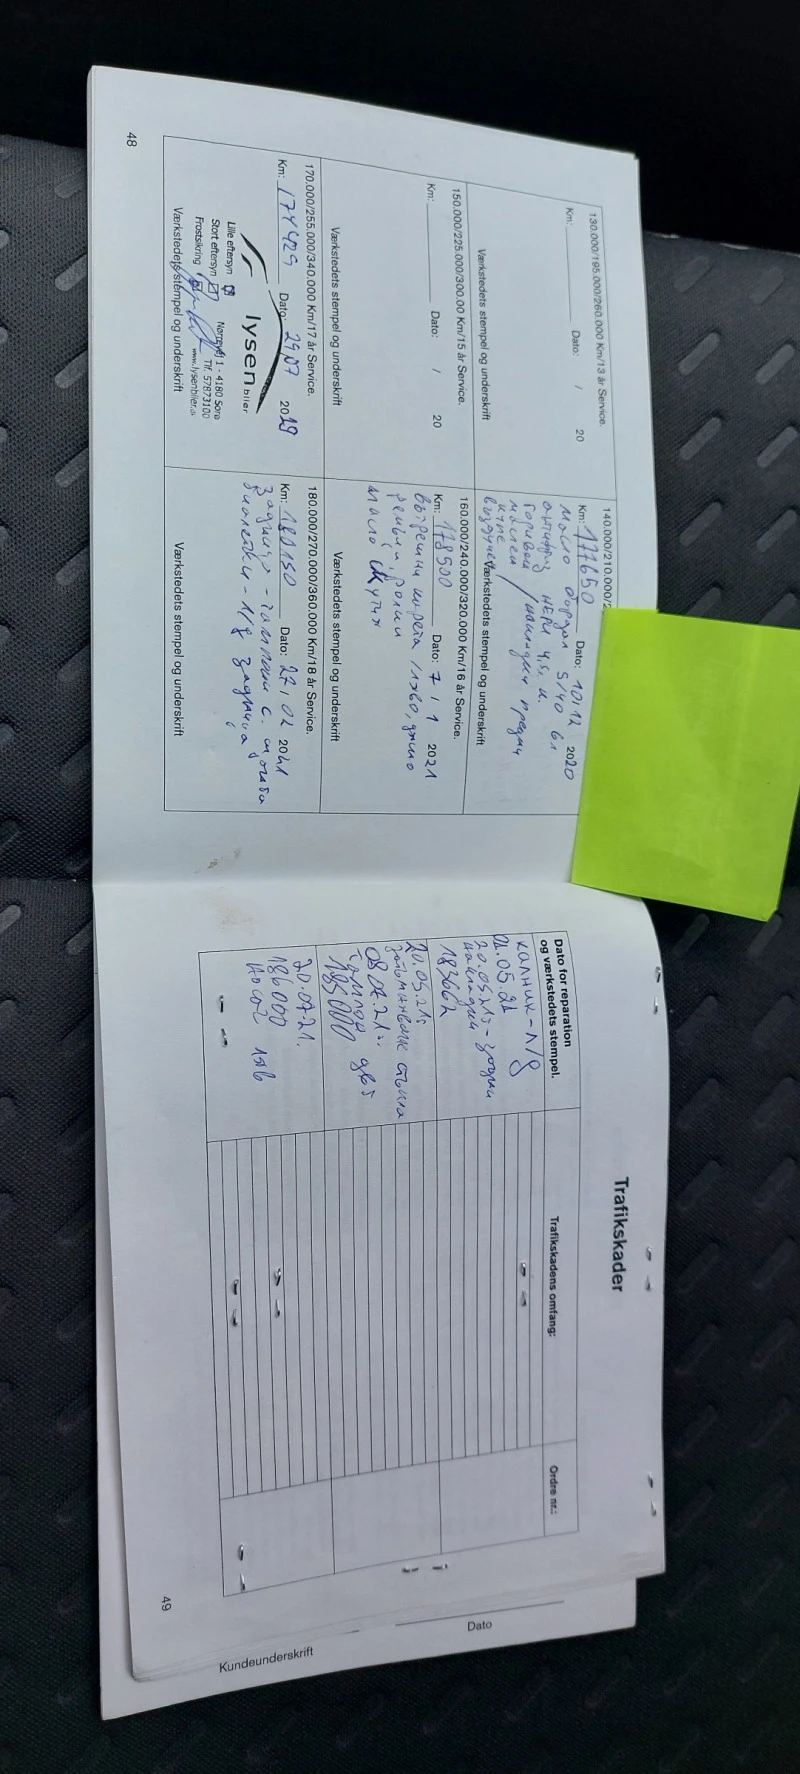 130.000/195.000/260.000 Km/13 år Service.
Km: Dato: / 20
Værkstedets stempel og underskrift
150.000/225.000/300.00 Km/15 år Service.
Km: Dato: / 20
Værkstedets stempel og underskrift
170.000/255.000/340.000 Km/17 år Service.
Km: 174429 Dato: 29,07 2019
lysen biler
Lille eftersyn
Stort eftersyn
Frostsikring
Nørrevej 1 - 4180 Sorø
Tlf. 57873100
www.lysenbiler.dk
Værkstedets stempel og underskrift
48
140.000/210.000/2
Km: 177650 Dato: 10/12 2020
масло 5/40 6л
антифриз
горивен / накладки предни
маслен
въздушен
Værkstedets stempel og underskrift
160.000/240.000/320.000 Km/16 år Service.
Km: 178500 Dato: 7 / 1 2021
вътрешни / ляво, дясно
ремъци, ролки
масло
Værkstedets stempel og underskrift
180.000/270.000/360.000 Km/18 år Service.
Km: 180150 Dato: 27 / 02 2021
биалетки - л/д
Værkstedets stempel og underskrift
Trafikskader
Dato for reparation
og værkstedets stempel.
Trafikskadens omfang:
Ordre nr.:
калник - л/д
01.05.21
20.05.21г - задни
накладки
183662
20.05.21г
08.07.21г.
185000
20.07.21.
186000
49
Dato
Kundeunderskrift